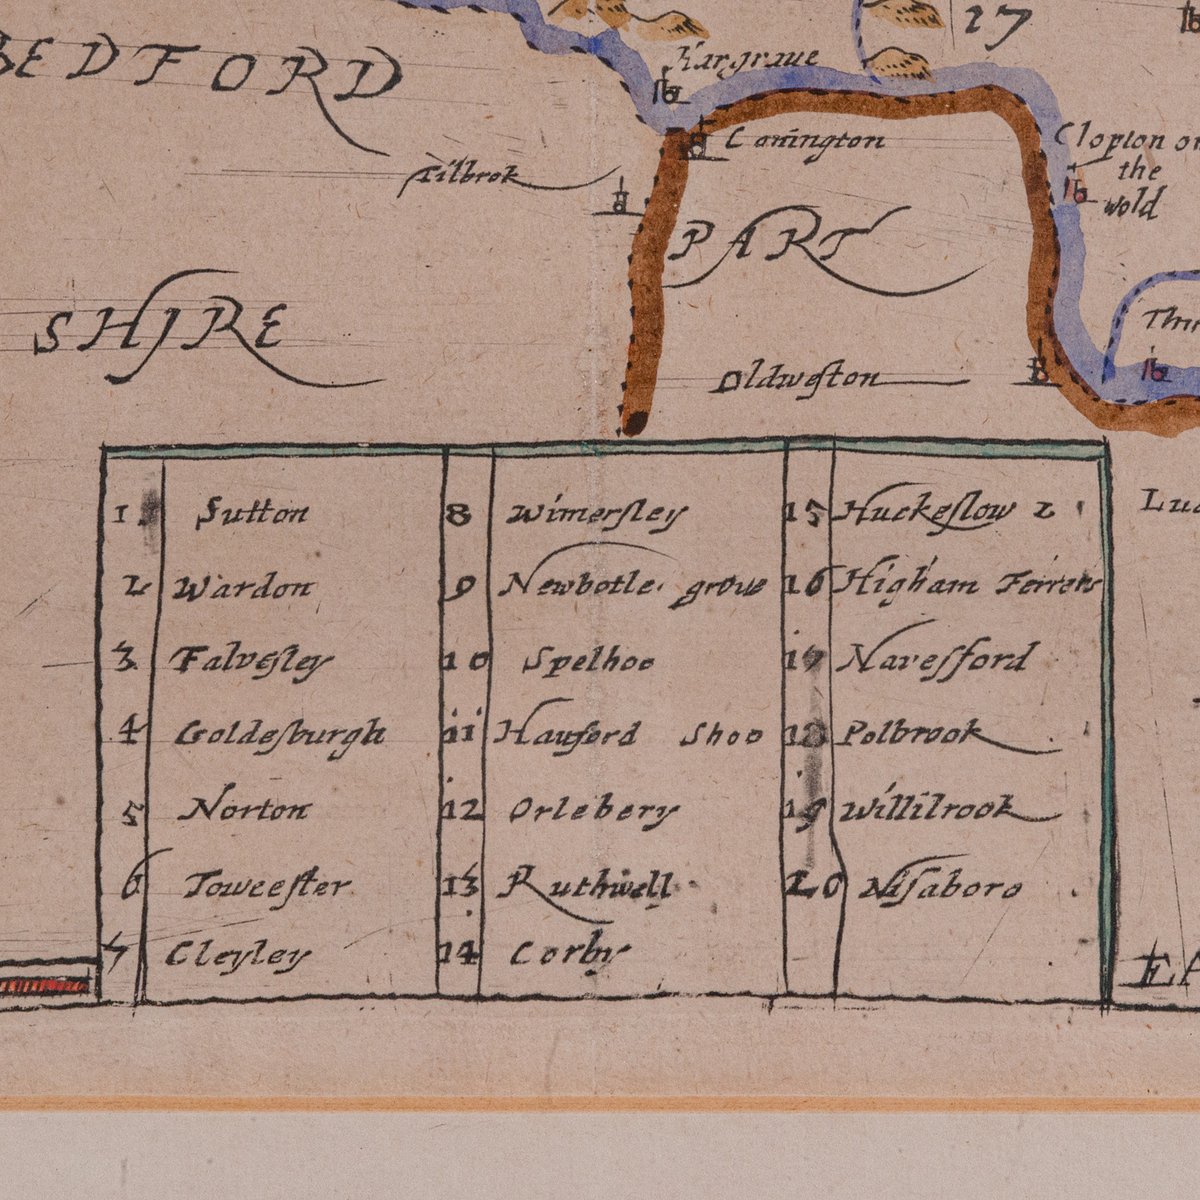 17
BEDFORD
Hargraue
Conington
Clopton on
the
wold
Tilbrok
PART
SHIRE
Oldweſton
1 Sutton
2 Wardon
3 Falveſley
4 Goldeſburgh
5 Norton
6 Towceſter
7 Cleyley
8 Wimerſley
9 Newbotle grove
10 Spelhoo
11 Hauford Shoo
12 Orlebery
13 Ruthwell
14 Corby
15 Huckeſlow 2
16 Higham Ferrers
17 Naveſford
18 Polbrook
19 Willilrook
20 Niſaboro